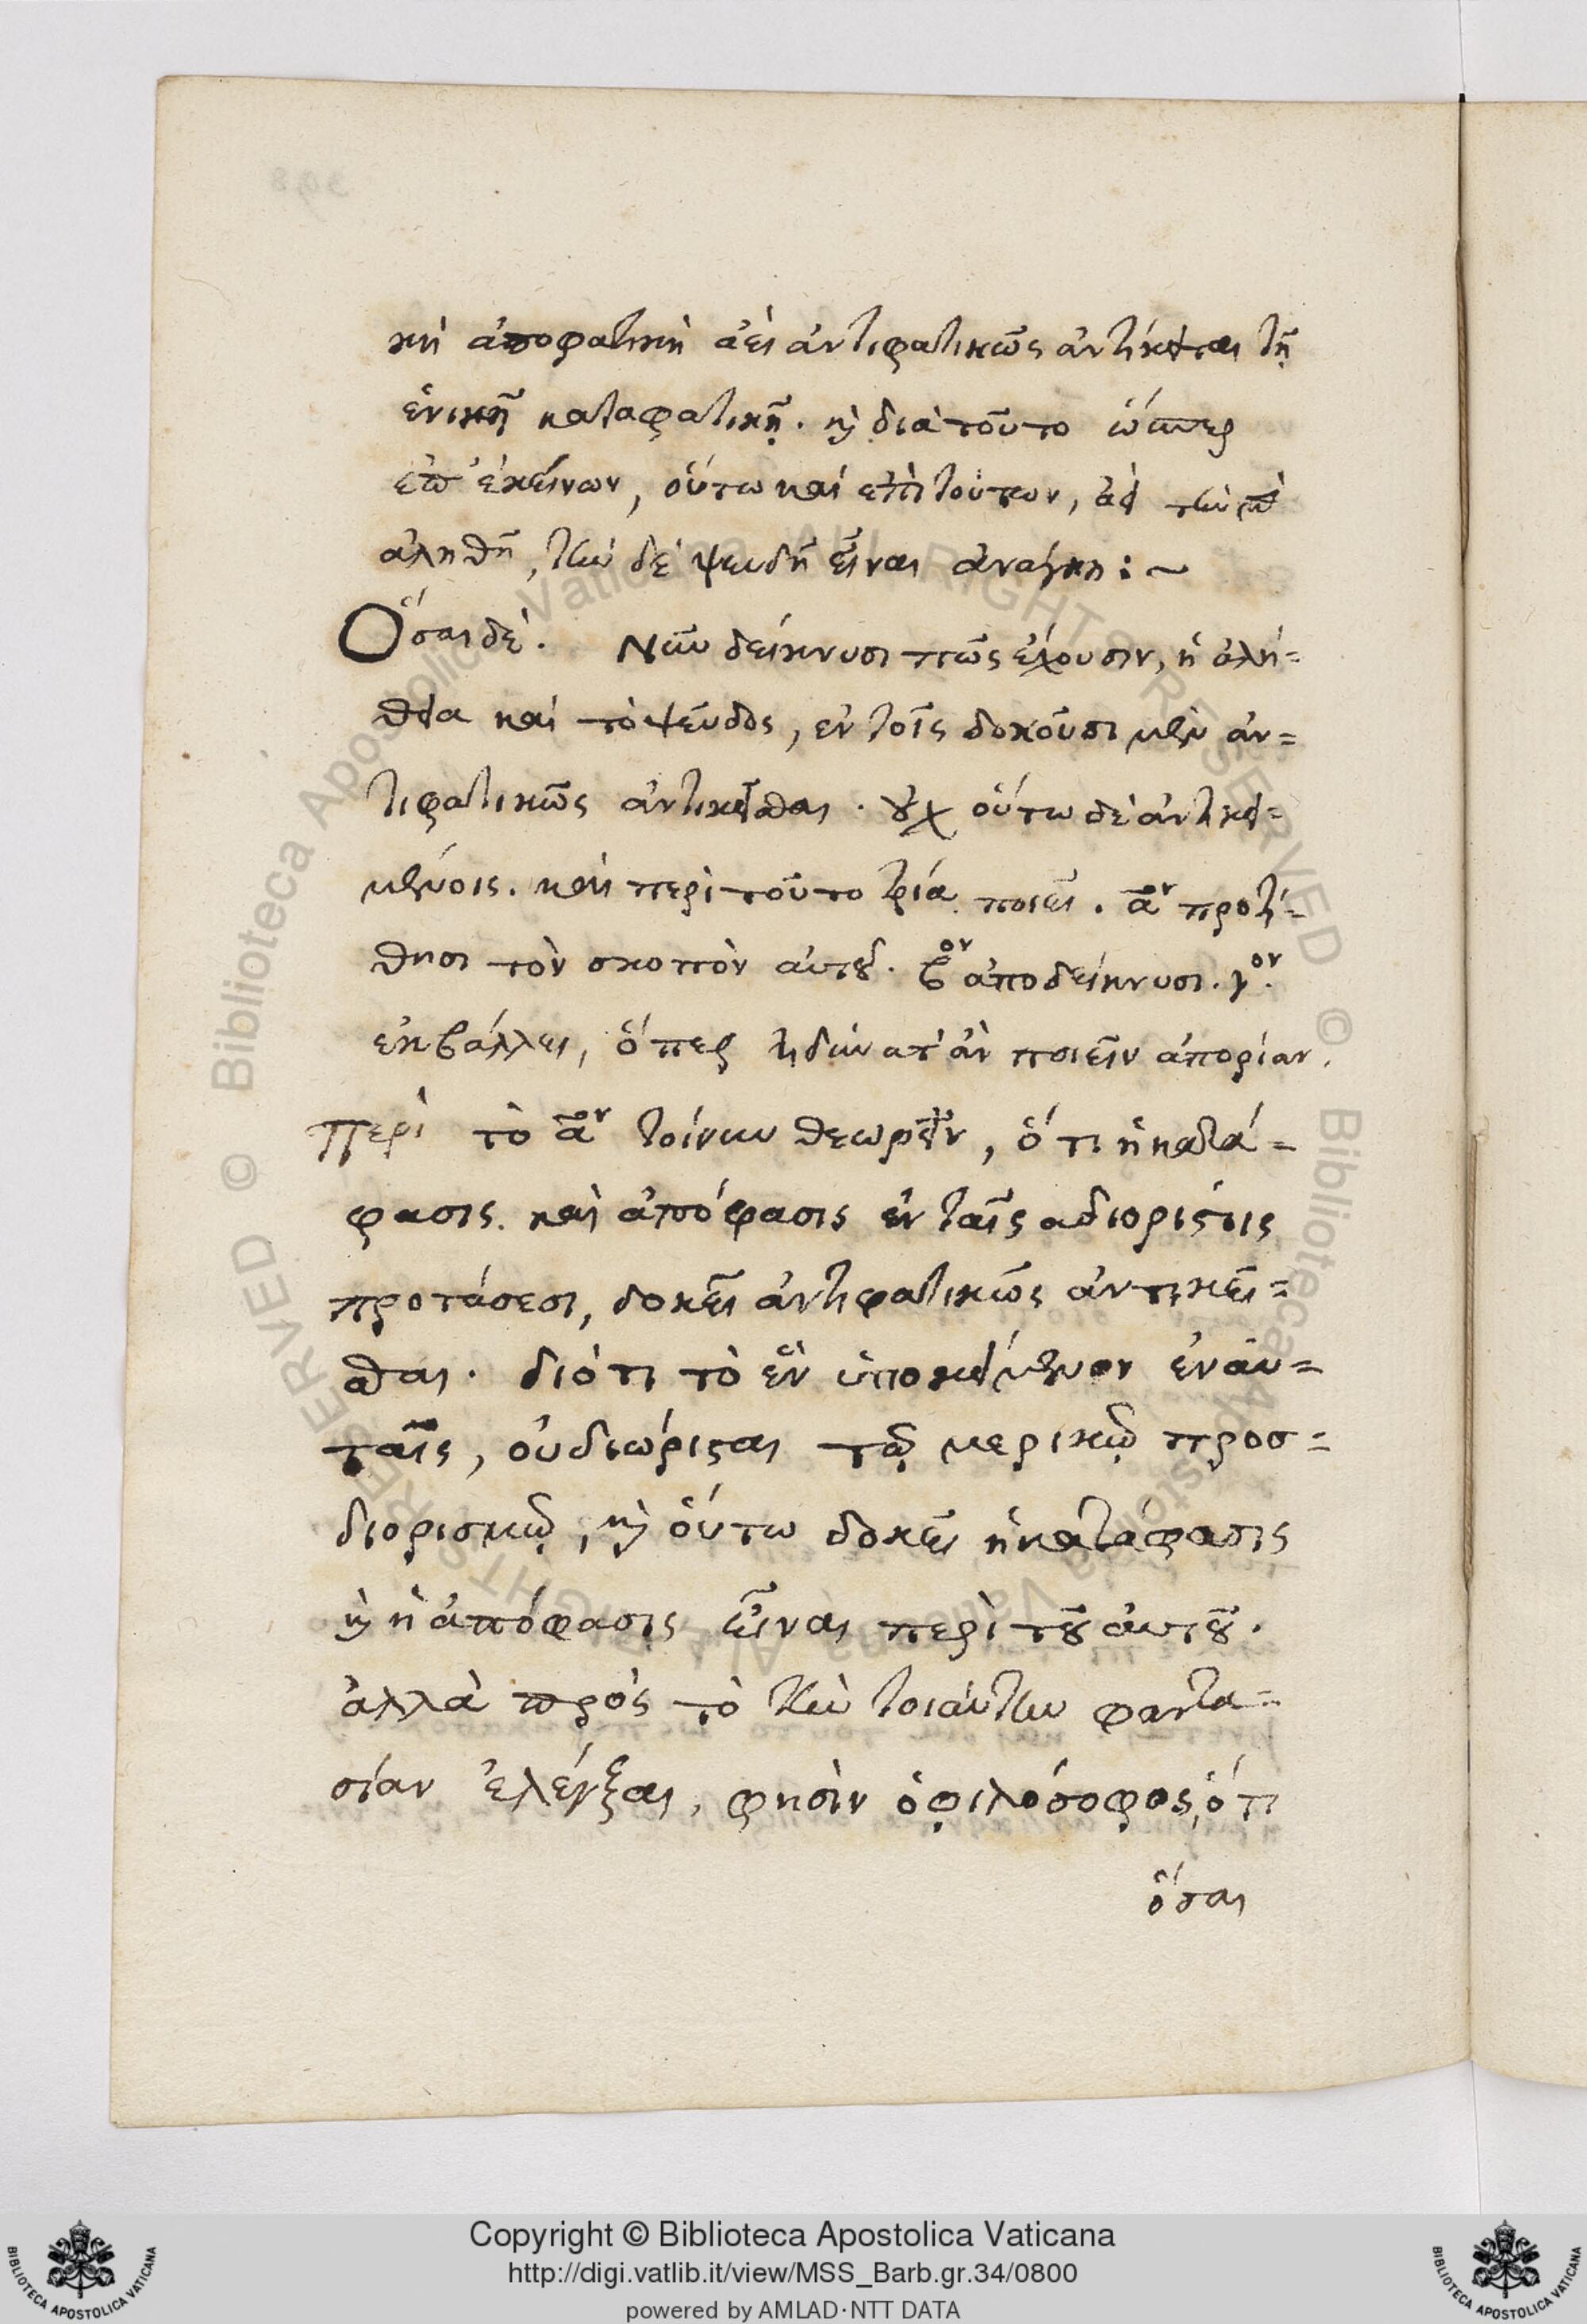 κὴ ἀποφατικὴ ἀεὶ ἀντιφατικῶς ἀντίκειται τῇ
ἑνικῇ καταφατικῇ. καὶ διὰ τοῦτο ὥσπερ
ἐπ' ἐκείνων, οὕτω καὶ ἐπὶ τούτων, ἀεὶ τὴν μὲν
ἀληθῆ, τὴν δὲ ψευδῆ εἶναι ἀνάγκη :~
Ὅσαι δέ. Νῦν δείκνυσι πῶς ἔχουσιν, ἡ ἀλή=
θεια καὶ τὸ ψεῦδος, ἐν τοῖς δοκοῦσι μὲν ἀν=
τιφατικῶς ἀντικεῖσθαι. οὐχ οὕτω δὲ ἀντικει=
μένοις. καὶ περὶ τοῦτο τρία ποιεῖ. αον προτί=
θησι τὸν σκοπὸν αὐτοῦ. βον ἀποδείκνυσι. γον.
ἐκβάλλει, ὅπερ ἠδύνατ' ἂν ποιεῖν ἀπορίαν.
Περὶ τὸ αον τοίνυν θεωρεῖν, ὅτι ἡ κατά=
φασις καὶ ἀπόφασις ἐν ταῖς ἀδιορίστοις
προτάσεσι, δοκεῖ ἀντιφατικῶς ἀντικεῖ=
σθαι. διότι τὸ ἓν ὑποκείμενον ἐν αὐ=
ταῖς, οὐ διώρισται τῷ μερικῷ προσ=
διορισμῷ, καὶ οὕτω δοκεῖ ἡ κατάφασις
καὶ ἡ ἀπόφασις εἶναι περὶ τοῦ αὐτοῦ.
ἀλλὰ πρὸς τὸ τὴν τοιαύτην φαντα=
σίαν ἐλέγξαι, φησὶν ὁ φιλόσοφος, ὅτι
ὅσαι
Copyright © Biblioteca Apostolica Vaticana
http://digi.vatlib.it/view/MSS_Barb.gr.34/0800
powered by AMLAD·NTT DATA